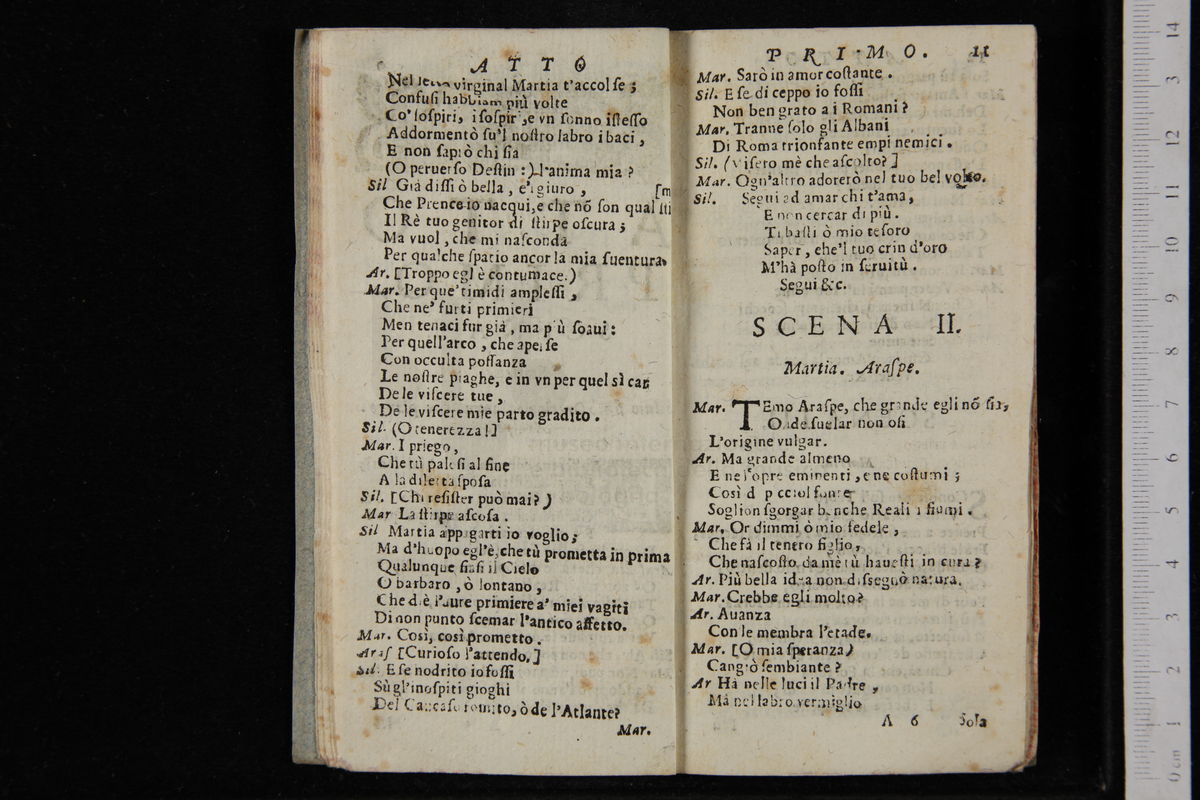 ATTO
Nel virginal Martia t'accolſe ;
Confuſi habbiam più volte
Co' ſoſpiri, i ſoſpiri, e vn ſonno iſteſſo
Addormentò ſu'l noſtro labro i baci,
E non ſaprò chi ſia
(O peruerſo Deſtin :) l'anima mia ?
Sil Già diſſi ò bella, e'l giuro, [m
Che Prence io nacqui, e che nõ ſon qual ſti
Il Rè tuo genitor di ſtirpe oſcura ;
Ma vuol, che mi naſconda
Per qualche ſpatio ancor la mia ſuentura.
Ar. [Troppo egl'è contumace.)
Mar. Per que' timidi ampleſſi,
Che ne' furti primieri
Men tenaci fur già, ma più ſoaui :
Per quell'arco, che aperſe
Con occulta poſſanza
Le noſtre piaghe, e in vn per quel sì car
De le viſcere tue,
De le viſcere mie parto gradito.
Sil. (O tenerezza!]
Mar. I priego,
Che tù paleſi al fine
A la diletta ſpoſa
Sil. [Chi reſiſter può mai? )
Mar La ſtirpe aſcoſa.
Sil Martia appagarti io voglio ;
Ma d'huopo egl'è, che tù prometta in prima
Qualunque ſiaſi il Cielo
O barbaro, ò lontano,
Che diè l'aure primiere a' miei vagiti
Di non punto ſcemar l'antico affetto.
Mar. Così, così prometto.
Araſ [Curioſo l'attendo.]
Sil. E ſe nodrito io foſſi
Sù gl'inoſpiti gioghi
Del Caucaſo romito, ò de l'Atlante?
Mar.
PRIMO. 11
Mar. Sarò in amor coſtante.
Sil. E ſe di ceppo io foſſi
Non ben grato a i Romani ?
Mar. Tranne ſolo gli Albani
Di Roma trionfante empi nemici.
Sil. (Miſero mè che aſcolto?]
Mar. Ogn'altro adorerò nel tuo bel volto.
Sil. Segui ad amar chi t'ama,
E non cercar di più.
Ti baſti ò mio teſoro
Saper, che'l tuo crin d'oro
M'hà poſto in ſeruitù.
Segui &c.
SCENA II.
Martia. Araſpe.
Mar. TEmo Araſpe, che grande egli nõ ſia,
Onde ſuelar non oſi
L'origine vulgar.
Ar. Ma grande almeno
E ne l'opre eminenti, e ne coſtumi ;
Così di picciol fonte
Soglion ſgorgar banche Reali i fiumi.
Mar. Or dimmi ò mio fedele,
Che fà il tenero figlio,
Che naſcoſto da mè tù haueſti in cura ?
Ar. Più bella idea non diſſegnò natura.
Mar. Crebbe egli molto?
Ar. Auanza
Con le membra l'etade.
Mar. [O mia ſperanza)
Cangiò ſembiante ?
Ar Hà nelle luci il Padre,
Mà nel labro vermiglio
A 6 Sola